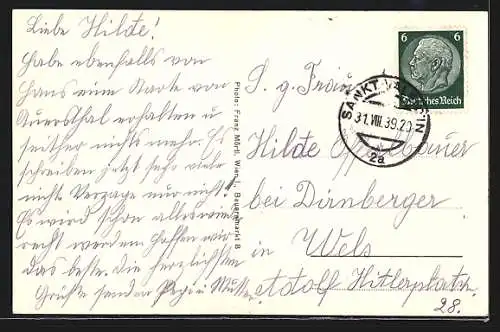 Liebe Hilde!
Habe ebenfalls von
Hans eine Karte von
Auersthal erhalten u
seither nichts mehr. Es
schreiben jetzt sehr viele
nicht. Verzage nur nicht!
Es wird schon alles wieder
recht werden hoffen wir
das beste. Die herzlichsten
Grüße senden Papi u Mutti
Photo: Franz Mörtl, Wien, Bauernmarkt
6 6
Deutsches Reich
SANKT VALENTIN
31.VIII.39.20
2a
S. g. Fräul
Hilde
bei Dirnberger
in Wels
Adolf Hitlerplatz
28.